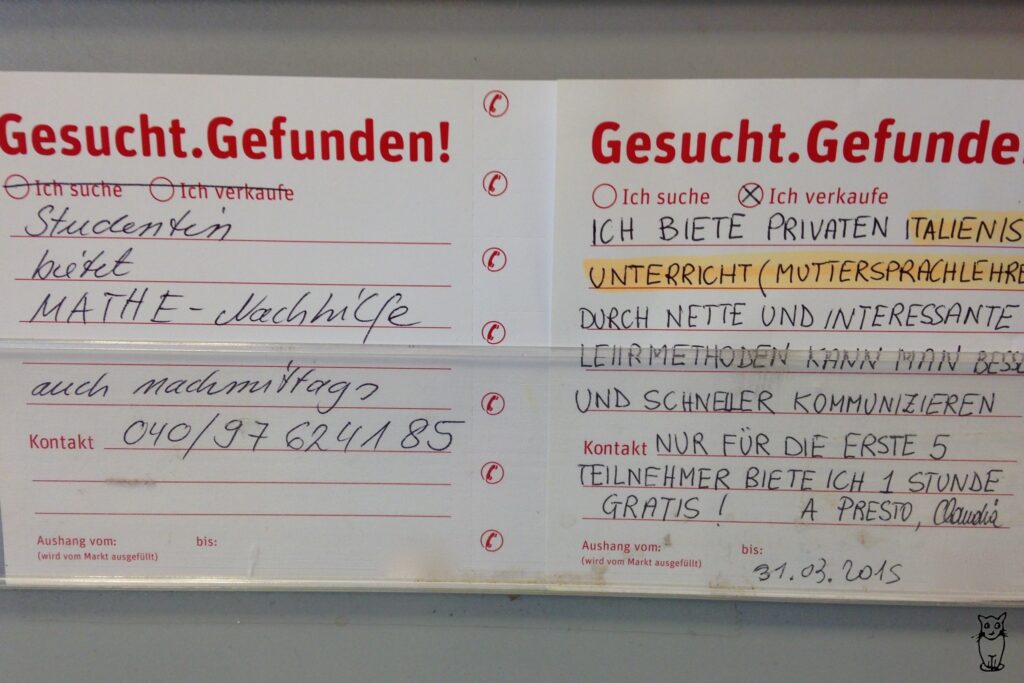 Gesucht.Gefunden!
Ich suche Ich verkaufe
Studentin
bietet
MATHE - Nachhilfe
auch nachmittags
Kontakt 040/97 6241 85
Aushang vom: bis:
(wird vom Markt ausgefüllt)
Gesucht.Gefunde
Ich suche Ich verkaufe
ICH BIETE PRIVATEN ITALIENIS
UNTERRICHT (MUTTERSPRACHLEHRE
DURCH NETTE UND INTERESSANTE
LEHRMETHODEN KANN MAN BESSE
UND SCHNELLER KOMMUNIZIEREN
Kontakt NUR FÜR DIE ERSTE 5
TEILNEHMER BIETE ICH 1 STUNDE
GRATIS! A PRESTO, Claudia
Aushang vom: bis:
(wird vom Markt ausgefüllt)
31.03.2015